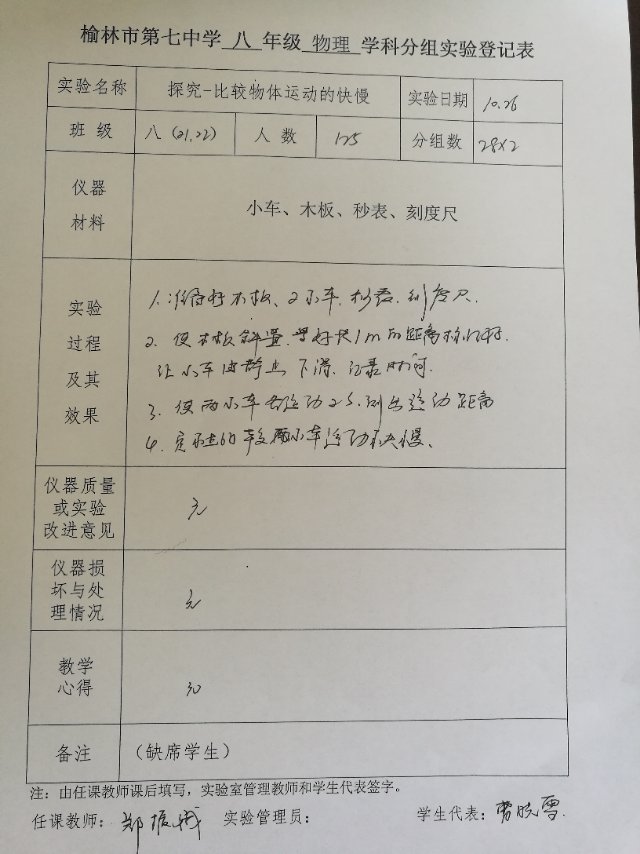 榆林市第七中学 八 年级 物理 学科分组实验登记表
实验名称 探究-比较物体运动的快慢 实验日期 10.26
班 级 八(21.22) 人 数 125 分组数 28×2
仪器
材料
小车、木板、秒表、刻度尺
实验
过程
及其
效果
1. 准备好木板、2小车. 秒表. 刻度尺.
2. 使木板斜置. 1m的距离
让小车由静止下滑、记录时间.
3. 使两小车各运动2s. 测出运动距离
4. 比较两小车运动快慢、
仪器质量
或实验
改进意见
无
仪器损
坏与处
理情况
无
教学
心得
无
备注 (缺席学生)
注:由任课教师课后填写,实验室管理教师和学生代表签字。
任课教师: 郑振 实验管理员: 学生代表: 晓雪